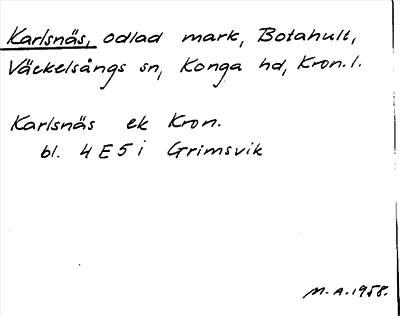 Karlsnäs, odlad mark, Botahult,
Väckelsångs sn, Konga hd, Kron. l.
Karlsnäs ek Kron.
bl. 4 E 5 i Grimsvik
M. A. 1958.